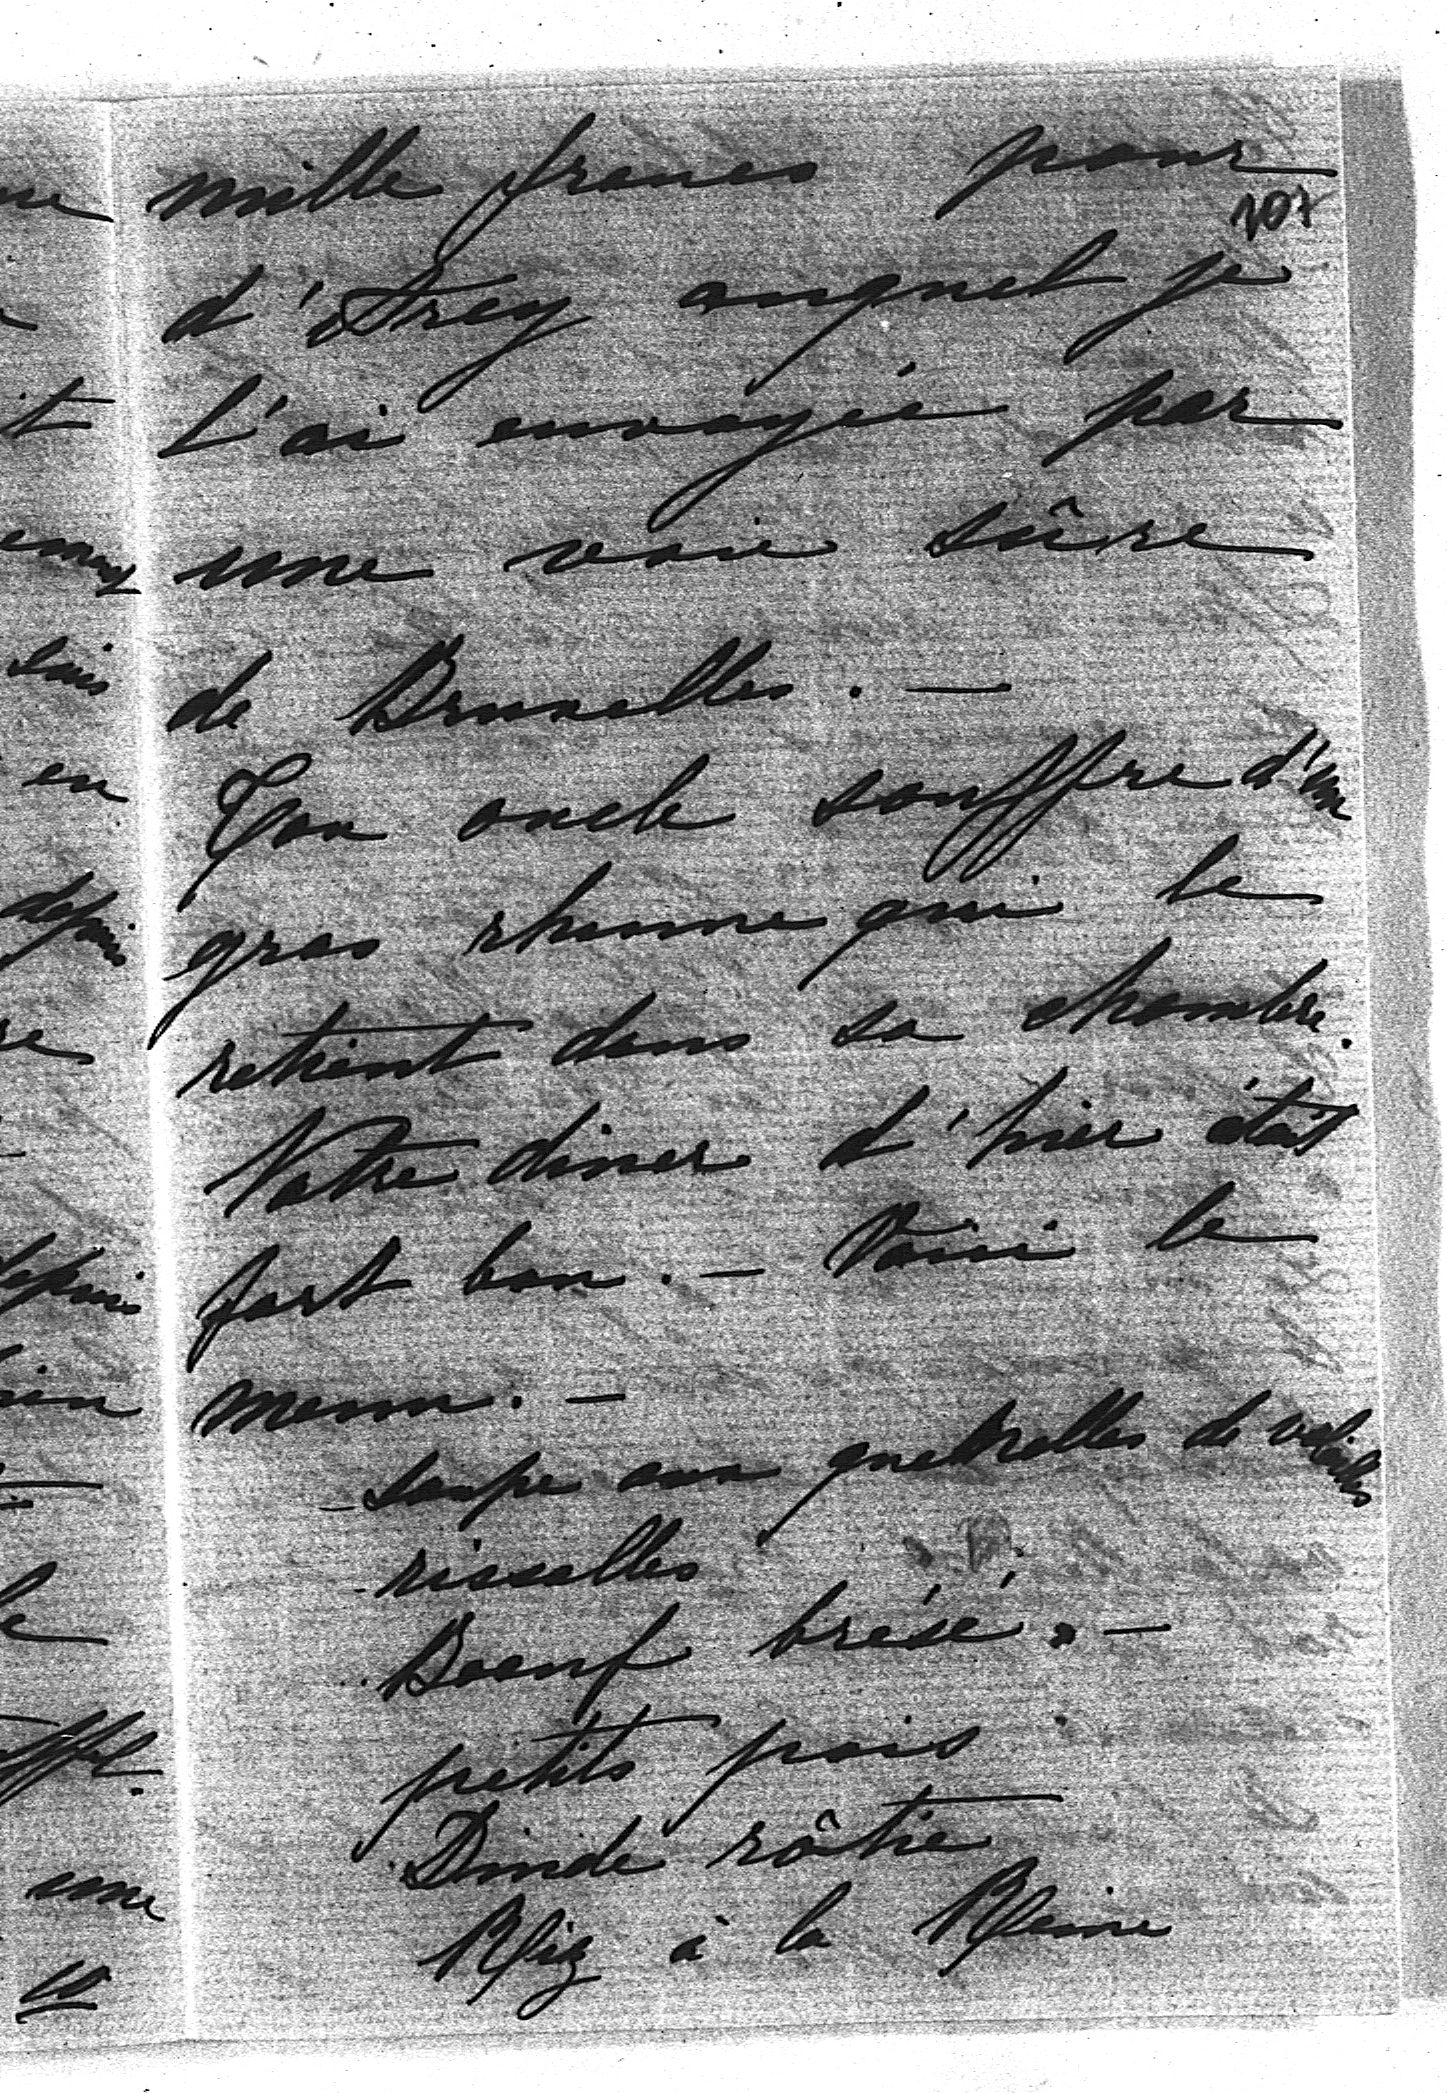 mille francs pour
107
d'Arey auquel je
l'ai envoyée par
une voie sûre
de Bruxelles. —
Ton oncle souffre d'un
gros rhume qui le
retient dans sa chambre.
Notre diner d'hier était
fort bon. — Voici le
menu. —
soupe aux quenelles de volailles
rissolles
Boeuf brésé. —
petits pois
Dinde rôtie
Riz à la Reine
ne
it
suis
en
depuis
re
depuis
le
une